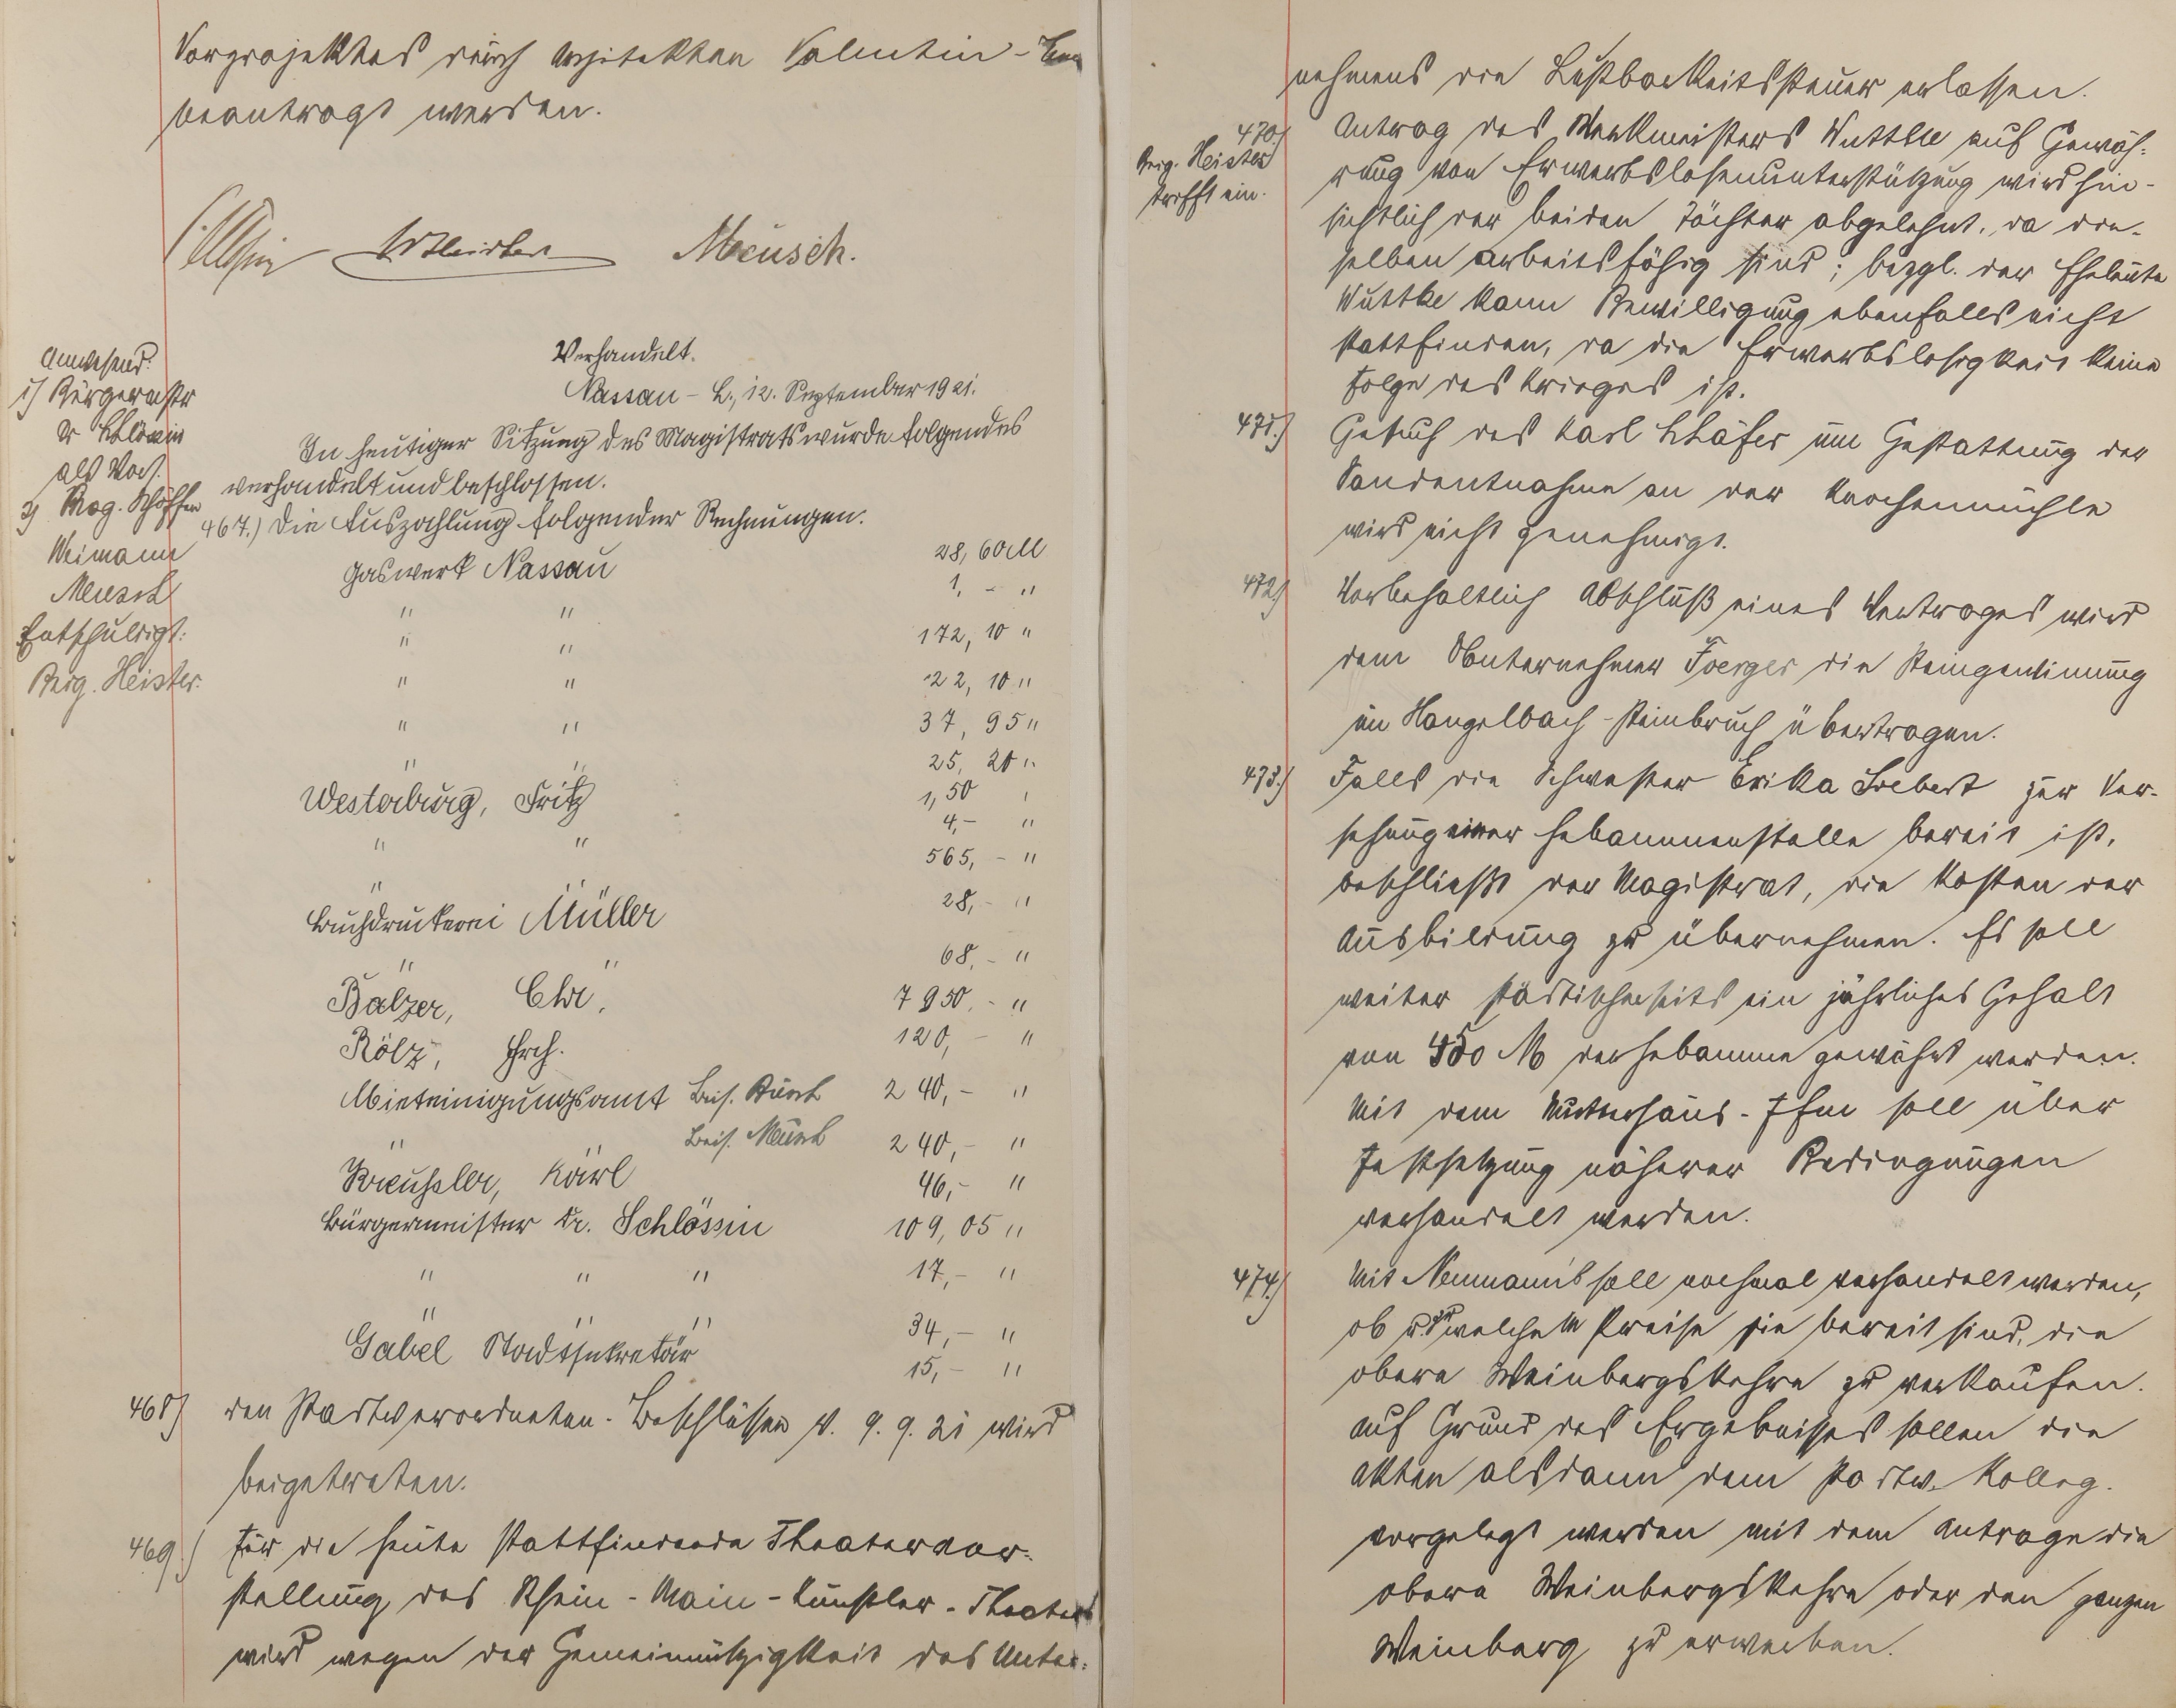 Vorprojektes durch Architekten Valentin - Ems
beantragt werden.
Meusch.
Anwesend:
1) Bürgermstr
Dr Schlössin
als Vors.
2) Mag. Schöffen
Weimann
Meusch
Entschuldigt:
Beig. Heister.
Verhandelt.
Nassau - L., 12. September 1921.
In heutiger Sitzung des Magistrats wurde folgendes
verhandelt und beschlossen.
467.) Die Auszahlung folgender Rechnungen.
Gaswerk Nassau 28,60 M
" " 1, - "
" " 172, 10 "
" " 22, 10 "
" " 37, 95 "
" " 25, 20 "
Westerburg, Fritz 1,50 "
" " 4,- "
" 565, - "
Buchdruckerei Müller 28,- "
" " 68,- "
Balzer, Chr. 7950,- "
Rölz, Frch. 120, - "
Mieteinigungsamt Beis. Busch 240,- "
" " Beis. Meusch 240,- "
Kreussler, Karl 46,- "
Bürgermeister Dr. Schlössin 109, 05 "
" " " 17,- "
" " " 34,- "
Gabel Stadtsekretär 15,- "
468) den Stadtverordneten-Beschlüssen v. 9.9.21 wird
beigetreten.
469.) Für die heute stattfindende Theatervor-
stellung des Rhein-Main-Künstler-Theaters
wird wegen der Gemeinnützigkeit des Unter-
nehmens die Lustbarkeitssteuer erlassen.
470.) Antrag des Werkmeisters Wuttke auf Gewäh-
Beig. Heister
trifft ein.
rung von Erwerbslosenunterstützung wird hin-
sichtlich der beiden Töchter abgelehnt, da die-
selben arbeitsfähig sind; bezgl. der Eheleute
Wuttke kann Bewilligung ebenfalls nicht
stattfinden, da die Erwerbslosigkeit keine
Folge des Krieges ist.
471.) Gesuch des Karl Schäfer um Gestattung der
Sandentnahme an der Knochenmühle
wird nicht genehmigt.
472.) Vorbehaltlich Abschluß eines Vertrages wird
dem Unternehmer Foerger die Steingewinnung
im Hangelbach-Steinbruch übertragen.
473.) Falls die Schwester Erika Siebert zur Ver-
sehung einer Hebammenstelle bereit ist,
beschließt der Magistrat, die Kosten der
Ausbildung zu übernehmen. Es soll
weiter städtischerseits ein jährliches Gehalt
von 450 M der Hebamme gewährt werden.
Mit dem Mutterhaus-Ifm soll über
Festsetzung näherer Bedingungen
verhandelt werden.
474.) Mit Neumann's soll nochmal verhandelt werden,
ob u. zu welchem Preise sie bereit sind, die
obere Weinbergskehre zu verkaufen.
Auf Grund des Ergebnisses sollen die
Akten alsdann dem Stadtv. Kolleg.
vorgelegt werden mit dem Antrage die
obere Weinbergskehre oder den ganzen
Weinberg zu erwerben.